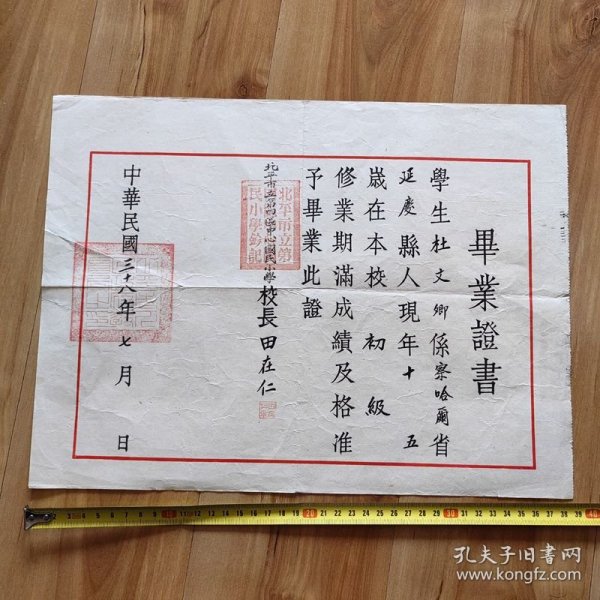 畢業證書
學生杜文卿係察哈爾省
延慶縣人現年十五
歲在本校初級
修業期滿成績及格准
予畢業此證
北平市立第四區中心國民小學校長田在仁
中華民國三十八年七月 日
孔夫子旧书网
www.kongfz.com